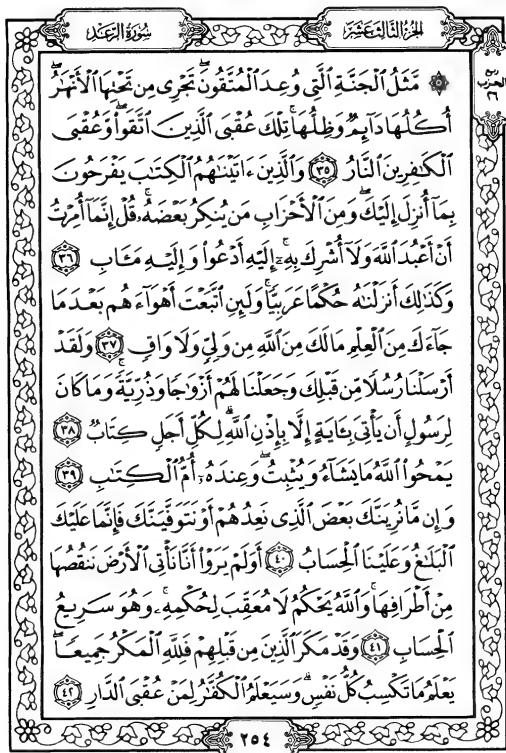 سُورَةُ الرَّعْدِ
الجُزْءُ الثَّالِثَ عَشَرَ
ربع
الحزب
٢٦
۞ مَّثَلُ ٱلۡجَنَّةِ ٱلَّتِي وُعِدَ ٱلۡمُتَّقُونَۖ تَجۡرِي مِن تَحۡتِهَا ٱلۡأَنۡهَٰرُۖ
أُكُلُهَا دَآئِمٞ وَظِلُّهَاۚ تِلۡكَ عُقۡبَى ٱلَّذِينَ ٱتَّقَواْۖ وَّعُقۡبَى
ٱلۡكَٰفِرِينَ ٱلنَّارُ ٣٥ وَٱلَّذِينَ ءَاتَيۡنَٰهُمُ ٱلۡكِتَٰبَ يَفۡرَحُونَ
بِمَآ أُنزِلَ إِلَيۡكَۖ وَمِنَ ٱلۡأَحۡزَابِ مَن يُنكِرُ بَعۡضَهُۥۚ قُلۡ إِنَّمَآ أُمِرۡتُ
أَنۡ أَعۡبُدَ ٱللَّهَ وَلَآ أُشۡرِكَ بِهِۦٓۚ إِلَيۡهِ أَدۡعُواْ وَإِلَيۡهِ مَـَٔابِ ٣٦
وَكَذَٰلِكَ أَنزَلۡنَٰهُ حُكۡمًا عَرَبِيّٗاۚ وَلَئِنِ ٱتَّبَعۡتَ أَهۡوَآءَهُم بَعۡدَ مَا
جَآءَكَ مِنَ ٱلۡعِلۡمِ مَا لَكَ مِنَ ٱللَّهِ مِن وَلِيّٖ وَلَا وَاقٖ ٣٧ وَلَقَدۡ
أَرۡسَلۡنَا رُسُلٗا مِّن قَبۡلِكَ وَجَعَلۡنَا لَهُمۡ أَزۡوَٰجٗا وَذُرِّيَّةٗۚ وَمَا كَانَ
لِرَسُولٍ أَن يَأۡتِيَ بِـَٔايَةٍ إِلَّا بِإِذۡنِ ٱللَّهِۗ لِكُلِّ أَجَلٖ كِتَابٞ ٣٨
يَمۡحُواْ ٱللَّهُ مَا يَشَآءُ وَيُثۡبِتُۖ وَعِندَهُۥٓ أُمُّ ٱلۡكِتَٰبِ ٣٩
وَإِن مَّا نُرِيَنَّكَ بَعۡضَ ٱلَّذِي نَعِدُهُمۡ أَوۡ نَتَوَفَّيَنَّكَ فَإِنَّمَا عَلَيۡكَ
ٱلۡبَلَٰغُ وَعَلَيۡنَا ٱلۡحِسَابُ ٤٠ أَوَلَمۡ يَرَوۡاْ أَنَّا نَأۡتِي ٱلۡأَرۡضَ نَنقُصُهَا
مِنۡ أَطۡرَافِهَاۚ وَٱللَّهُ يَحۡكُمُ لَا مُعَقِّبَ لِحُكۡمِهِۦۚ وَهُوَ سَرِيعُ
ٱلۡحِسَابِ ٤١ وَقَدۡ مَكَرَ ٱلَّذِينَ مِن قَبۡلِهِمۡ فَلِلَّهِ ٱلۡمَكۡرُ جَمِيعٗاۖ
يَعۡلَمُ مَا تَكۡسِبُ كُلُّ نَفۡسٖۗ وَسَيَعۡلَمُ ٱلۡكُفَّٰرُ لِمَنۡ عُقۡبَى ٱلدَّارِ ٤٢
٢٥٤